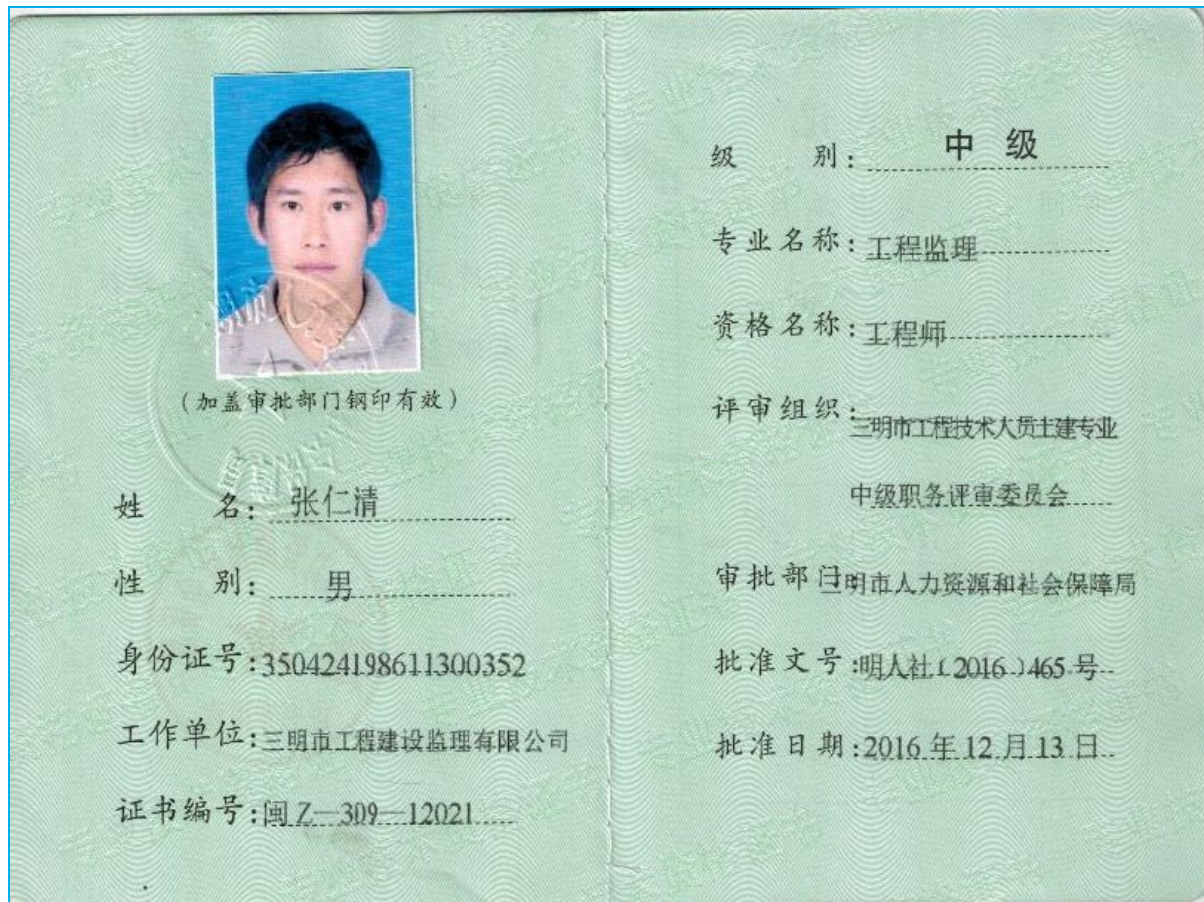 (加盖审批部门钢印有效)
姓 名: 张仁清
性 别: 男
身份证号:350424198611300352
工作单位:三明市工程建设监理有限公司
证书编号:闽Z—309—12021
级 别: 中 级
专业名称: 工程监理
资格名称: 工程师
评审组织: 三明市工程技术人员土建专业
中级职务评审委员会
审批部门:三明市人力资源和社会保障局
批准文号:明人社(2016)465号
批准日期:2016年12月13日